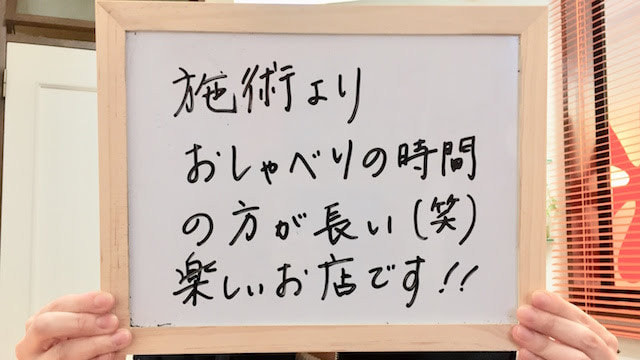 施術より
おしゃべりの時間
の方が長い(笑)
楽しいお店です!!